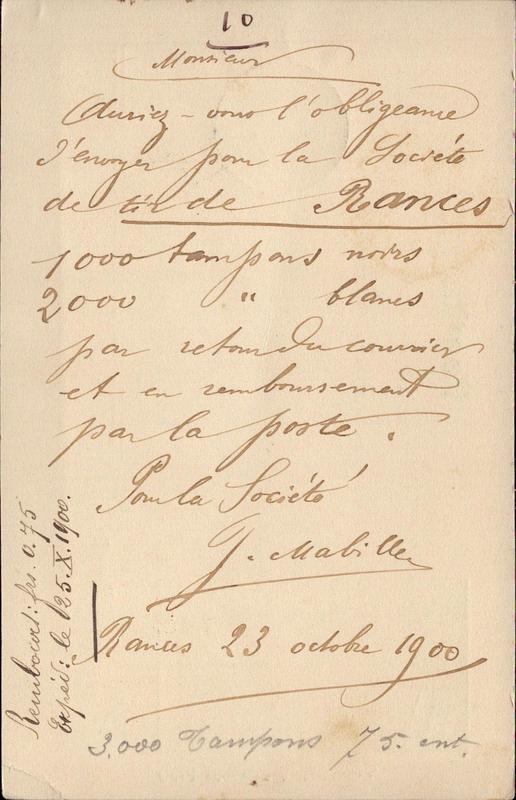 10
Monsieur
Auriez-vous l'obligeance
d'envoyer pour la Société
de tir de Rances
1000 tampons noirs
2000 " blancs
par retour du courrier
et en remboursement
par la poste.
Pour la Société
J. Mabille
Rances 23 octobre 1900
3,000 Tampons 75. cnt.
Rembours: frs. 0.75
Expéd: le 25. X. 1900.